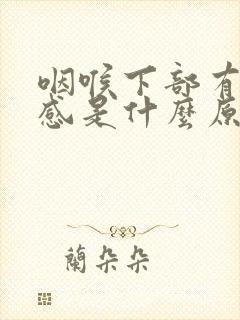 咽喉下部有
感是什麼原
蘭朵朵